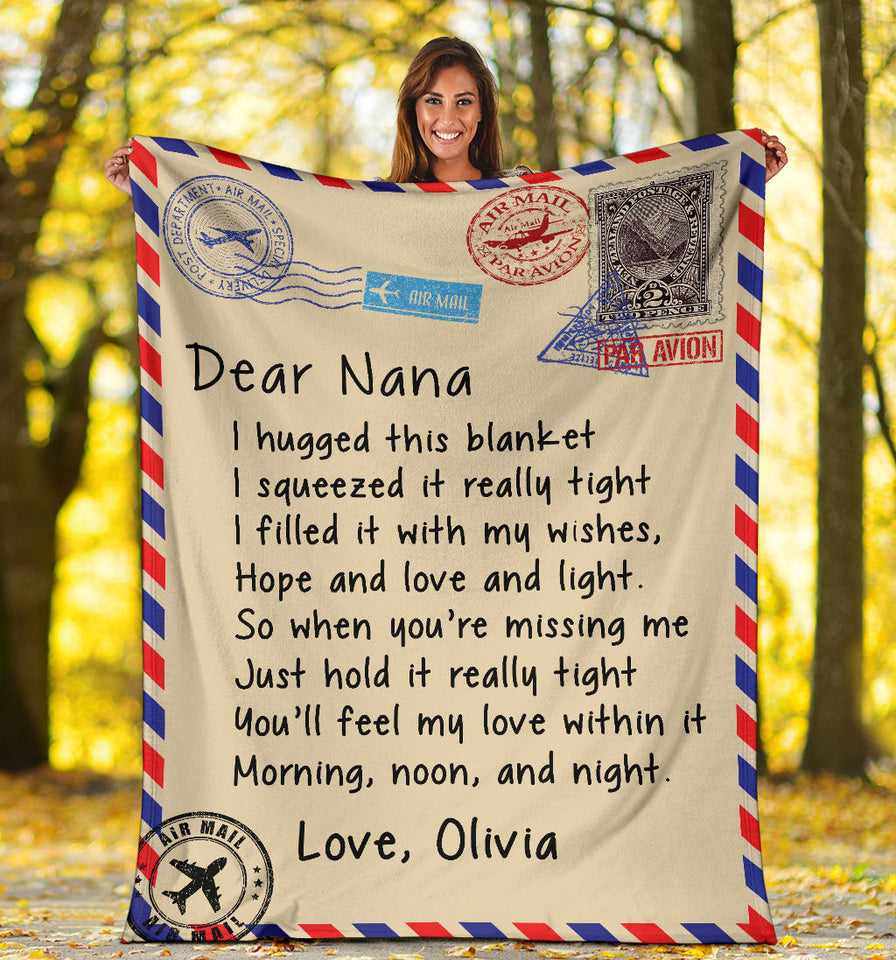 POST DEPARTMENT ★ AIR MAIL ★ SPECIAL DELIVERY ★
AIR MAIL
AIR MAIL
Air Mail
PAR AVION
NEW ZEALAND POSTAGE & REVENUE
D 2 D
TWO PENCE
PAR AVION
Dear Nana
I hugged this blanket
I squeezed it really tight
I filled it with my wishes,
Hope and love and light.
So when you're missing me
Just hold it really tight
You'll feel my love within it
Morning, noon, and night.
Love, Olivia
AIR MAIL
AIR MAIL